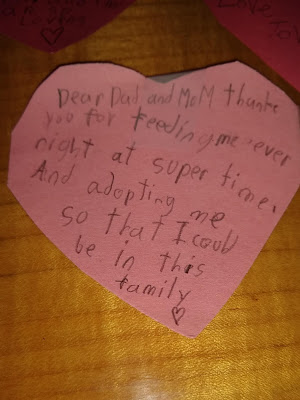 Dear Dad and MoM thanks
you for feeding me ever
night at super time.
And adopting me
so that I could
be in this
family